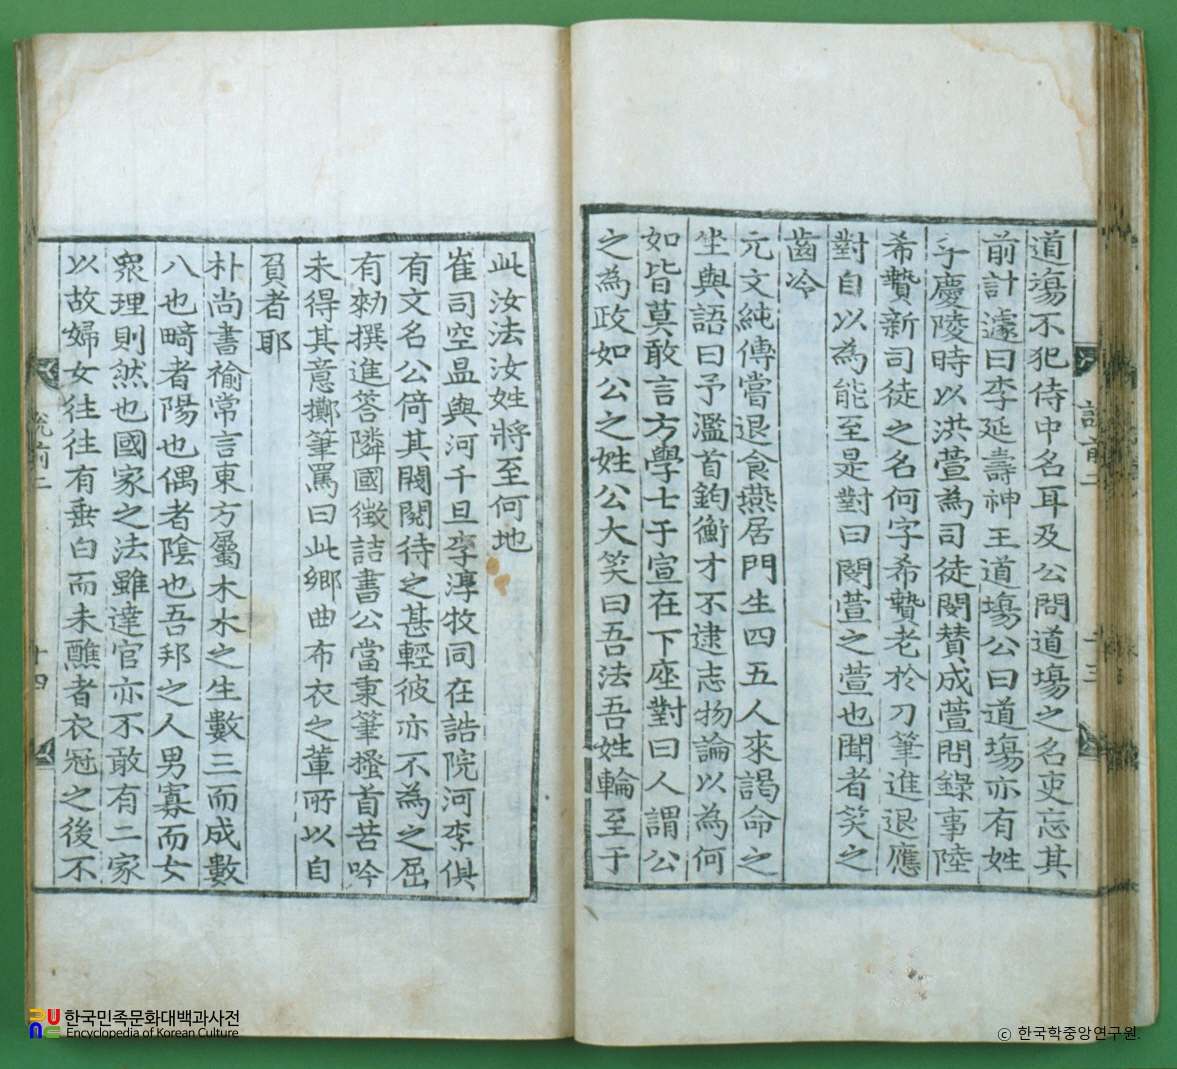 道場不犯侍中名耳及公問道場之名吏忘其
前計遽曰李延壽神王道場公曰道場亦有姓
乎慶陵時以洪萱為司徒閔賛成萱問錄事陸
希贄新司徒之名何字希贄老於刀筆進退應
對自以為能至是對曰閔萱之萱也聞者笑之
齒冷
元文純傅嘗退食燕居門生四五人來謁命之
坐與語曰予濫首鈞衡才不逮志物論以為何
如皆莫敢言方學士于宣在下座對曰人謂公
之為政如公之姓公大笑曰吾法吾姓輪至于
此汝法汝姓將至何地
崔司空昷與河千旦李淳牧同在誥院河李俱
有文名公倚其閥閱待之甚輕彼亦不為之屈
有勑撰進答隣國徵詰書公當秉筆搔首苦吟
未得其意擲筆罵曰此鄉曲布衣之輩所以自
負者耶
朴尚書褕常言東方屬木木之生數三而成數
八也畸者陽也偶者陰也吾邦之人男寡而女
衆理則然也國家之法雖達官亦不敢有二家
以故婦女往往有垂白而未醮者衣冠之後不
說前二
十三
十四
한국민족문화대백과사전
Encyclopedia of Korean Culture
ⓒ 한국학중앙연구원.